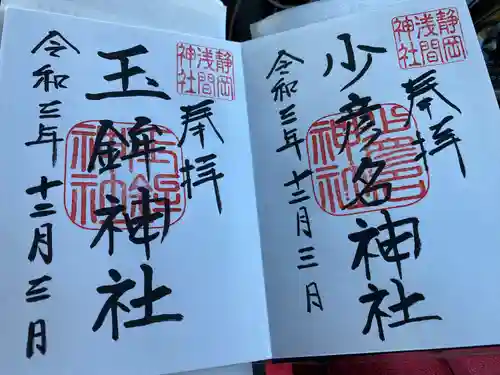 静岡
浅間
神社
奉拝
少彦名神社
令和三年十二月三日
静岡
浅間
神社
奉拝
玉鉾神社
令和三年十二月三日